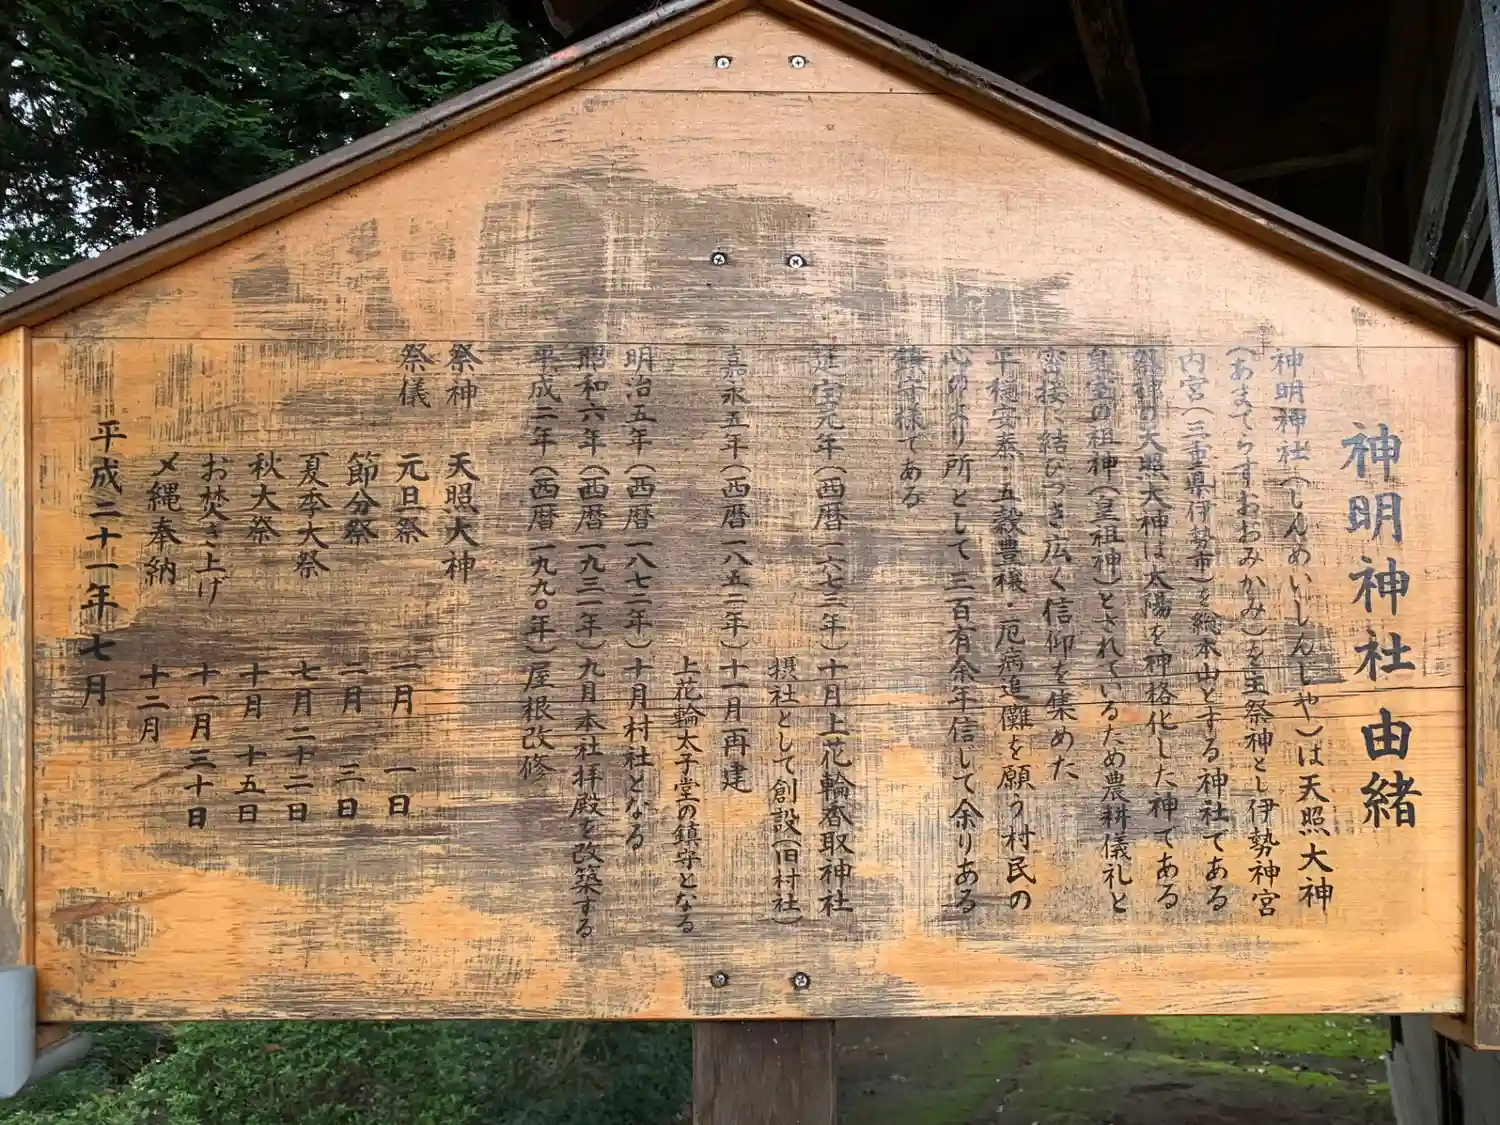 神明神社由緒
神明神社(しんめいじんじゃ)は天照大神
(あまてらすおおみかみ)を主祭神とし伊勢神宮
内宮(三重県伊勢市)を総本山とする神社である
祭神の天照大神は太陽を神格化した神である
皇室の祖神(皇祖神)とされているため農耕儀礼と
密接に結びつき広く信仰を集めた
平穏安泰・五穀豊穣・厄病追儺を願う村民の
心のより所として三百有余年信じて余りある
鎮守様である
延宝元年(西暦一六七三年)十月上花輪香取神社
摂社として創設(旧村社)
嘉永五年(西暦一八五二年)十一月再建
上花輪太子堂の鎮守となる
明治五年(西暦一八七二年)十月村社となる
昭和六年(西暦一九三一年)九月本社拝殿を改築する
平成二年(西暦一九九〇年)屋根改修
祭神 天照大神
祭儀 元旦祭 一月 一日
節分祭 二月 三日
夏季大祭 七月二十二日
秋大祭 十月 十五日
お焚き上げ 十一月三十日
〆縄奉納 十二月
平成二十一年七月